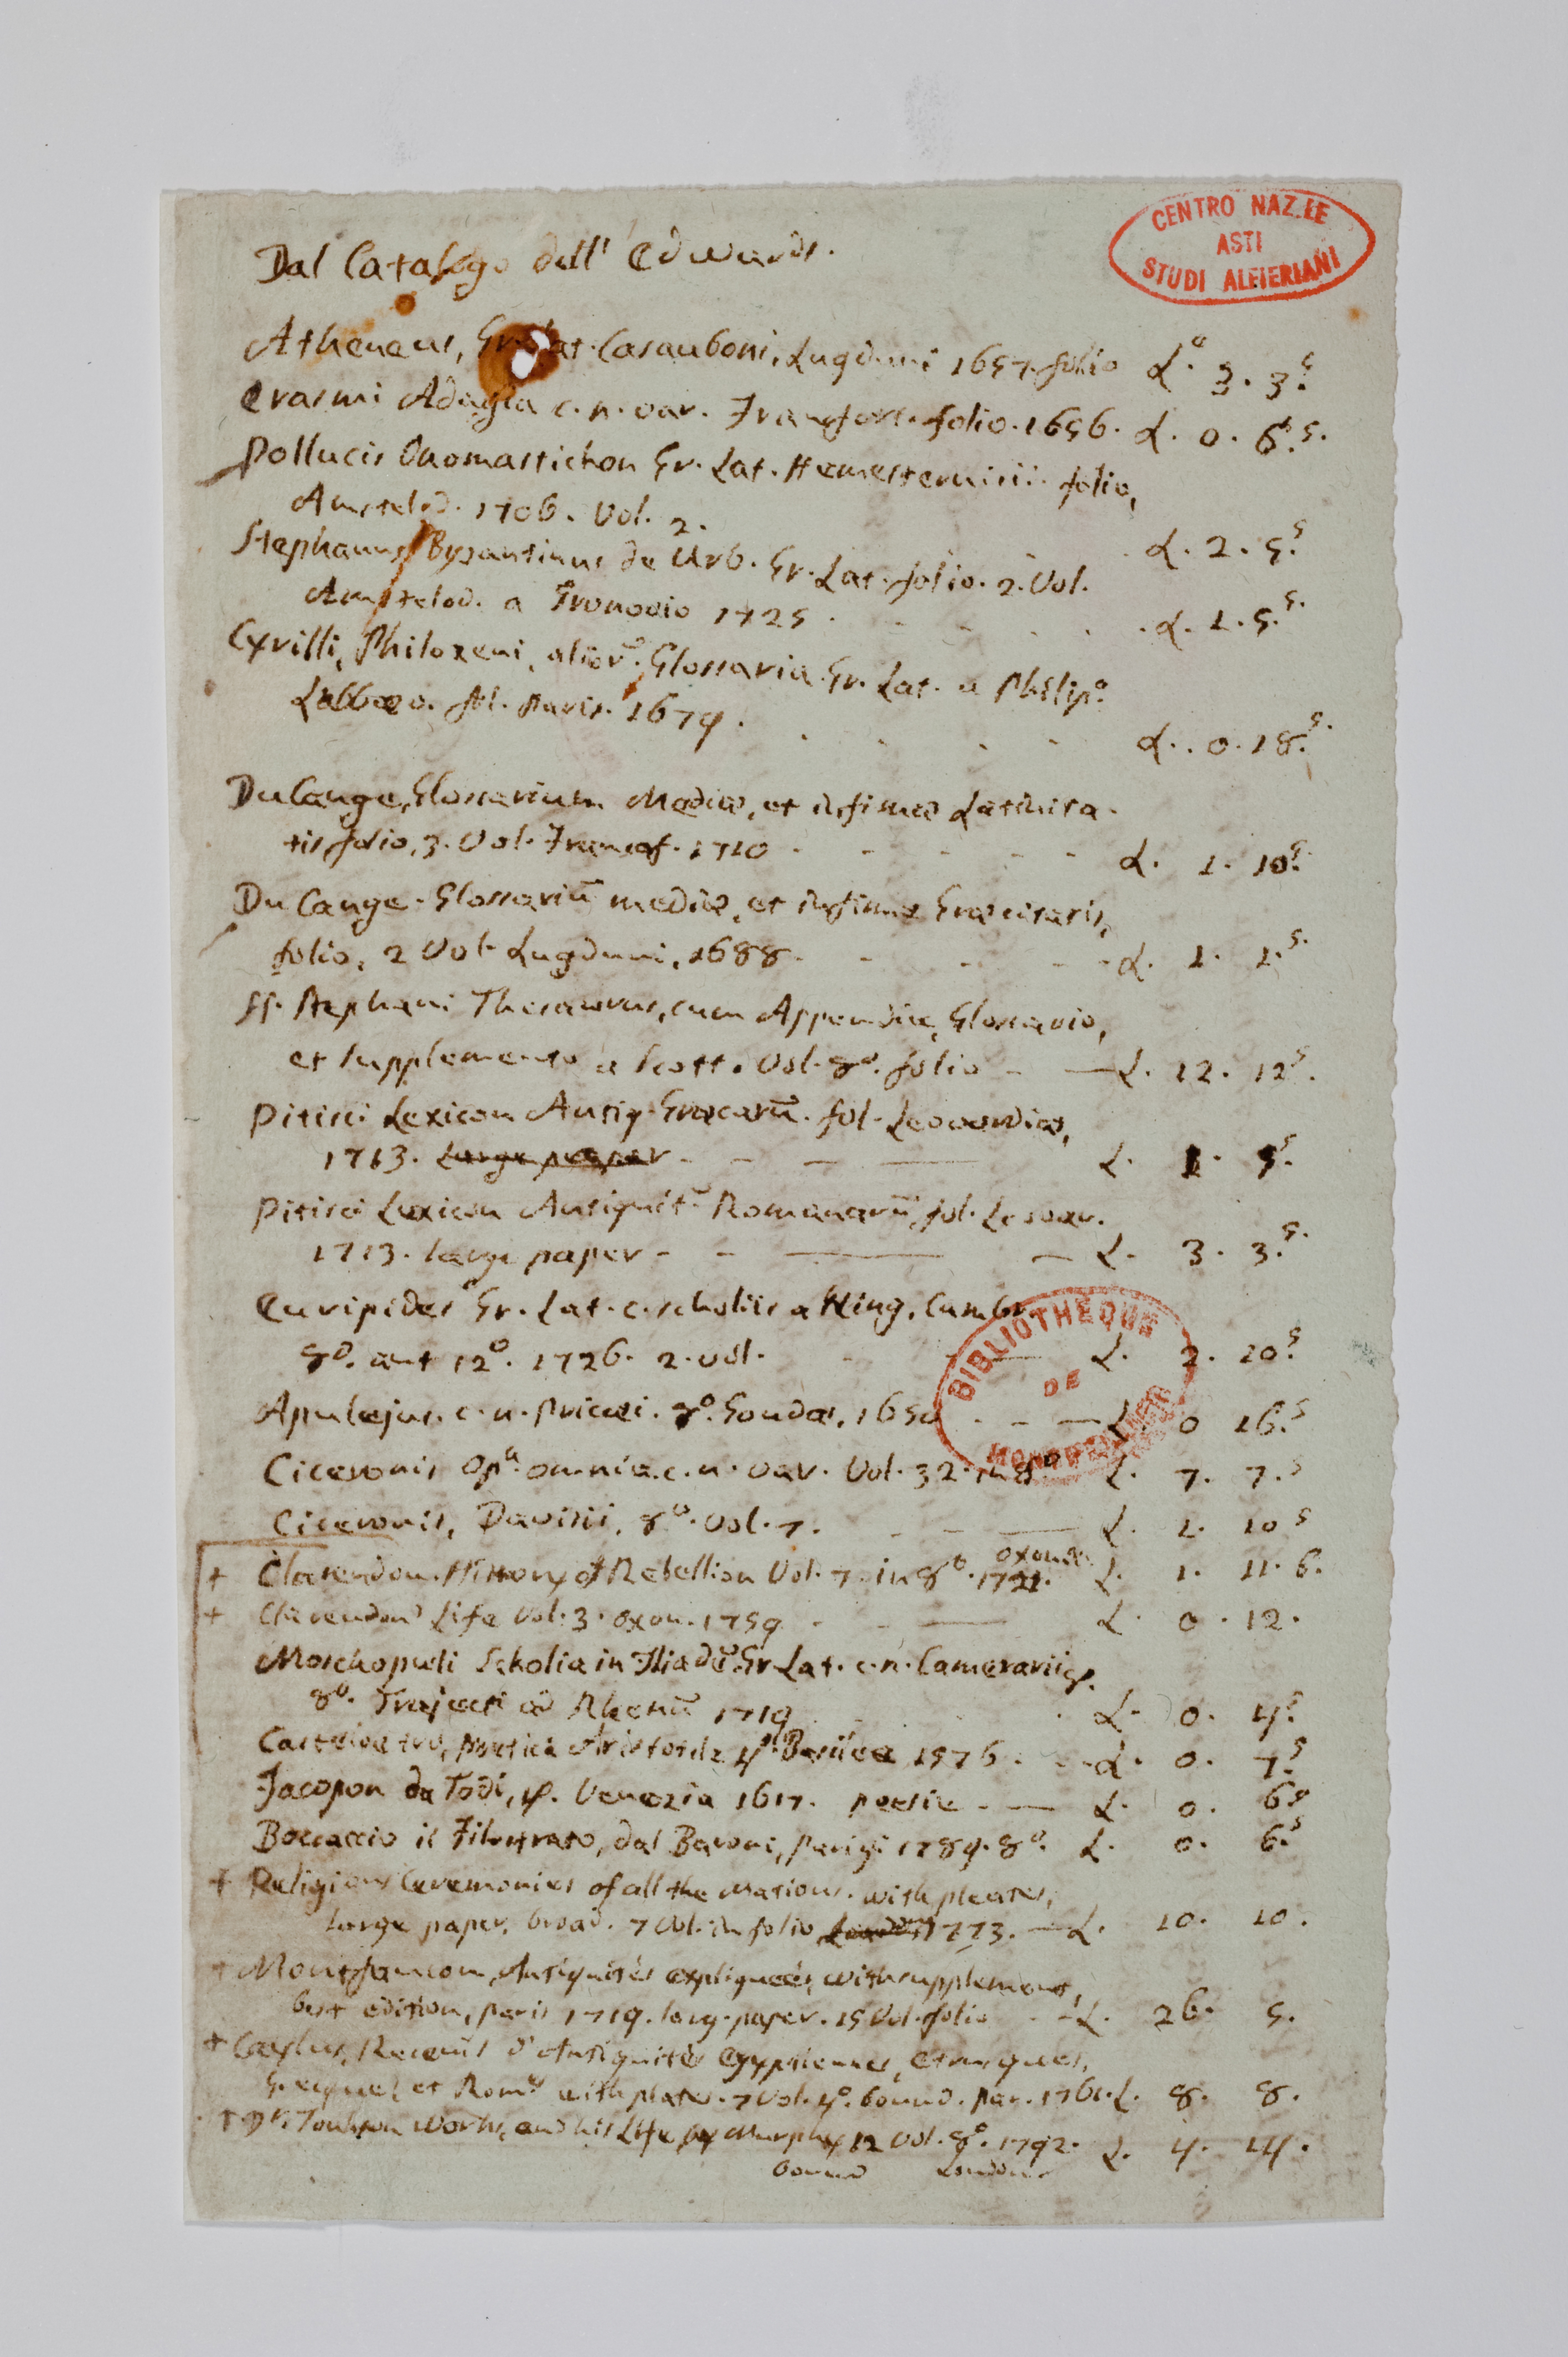 CENTRO NAZ.LE
ASTI
STUDI ALFIERIANI
Dal Catalogo dell' Edwards.
Atheneus, Gr. Lat. Casauboni, Lugduni 1657. folio L.ᵃ 3. 3.ˢ
Erasmi Adagia c. n. var. Francfort. folio. 1656. L. 0. 6.ˢ.
Pollucis Onomastichon Gr. Lat. Hemesternisii. folio,
Amstelod. 1706. Vol. 2. L. 2. 5.ˢ
Stephanus Byzantinus de Urb. Gr. Lat. folio. 2. Vol.
Amstelod. a Gronovio 1725. L. 1. 5.ˢ
Cyrilli, Philoxeni, alior̃. Glossaria Gr. Lat. a Philip.º
Labbæo. fol. Paris. 1679. L. 0. 18.ˢ
Du Cange, Glossarium Mediæ, et infimæ Latinita-
tis, folio, 3. Vol. Francof. 1710 - - - - L. 1. 10.ˢ
Du Cange. Glossariũ mediæ, et infimæ Græcitatis,
folio, 2 Vol. Lugduni, 1688. - - - L. 1. 1.ˢ
Stephani Thesaurus, cum Appendice, Glossario,
et supplemento a Scott. Vol. 8º. folio - — L. 12. 12ˢ.
Pitisci Lexicon Antiq. Græcarũ. fol. Leovardiæ,
1713. Large paper - - — — L. 1. 5ˢ.
Pitisci Lexicon Antiquit̃. Romanarũ, fol. Leovar.
1713. large paper - - — — L. 3. 3.ˢ
Euripides Gr. Lat. c. scholiis a King. Cambr.
8º. aut 12º. 1726. 2. vol. - - — L. 2. 10.ˢ
BIBLIOTHEQUE
DE
MONTPELLIER
Apulejus. c. n. Pricæi. 8º. Goudæ, 1650 - - — L. 0 16.ˢ
Ciceronis Op.ᵃ omnia. c. n. var. Vol. 32. in 8º L. 7. 7.ˢ
Ciceronis, Davisii, 8º. Vol. 7. - - — L. 1. 10ˢ
+ Clarendon. History of Rebellion Vol. 7. in 8º. Oxon. 1721. L. 1. 11. 6.
+ Clarendon's Life Vol. 3. Oxon. 1759 - - — L. 0. 12.
Moschopuli Scholia in Iliadẽ. Gr. Lat. c. n. Camerarii
8º. Trajecti ad Rhenũ 1719 L. 0. 4.ˢ
Castelvetro, Poetica Aristotile 4º. Basilea 1576. - L. 0. 7.ˢ
Jacopon da Todi, 4º. Venezia 1617. poesie. - — L. 0. 6ˢ
Boccaccio il Filostrato, dal Baroni, Parigi 1789. 8º. L. 0. 6.ˢ
+ Religious Ceremonies of all the Nations. with pleates,
large paper, broad. 7 Vol. in folio, London 1773. — L. 10. 10.
+ Montfaucon, Antiquités expliquées, with supplement,
best edition, paris 1719. larg. paper. 15 Vol. folio - - L. 26. 5.
+ Caylus, Recueil d'Antiquités Egyptiennes, Etrusques,
Grecques et Rom.ˢ with plates. 7 Vol. 4º. bound. par. 1761. L. 8. 8.
+ Dʳ. Jonhson Works, and his Life by Murphy 12 Vol. 8º. 1792. L. 4. 14.
bound London.